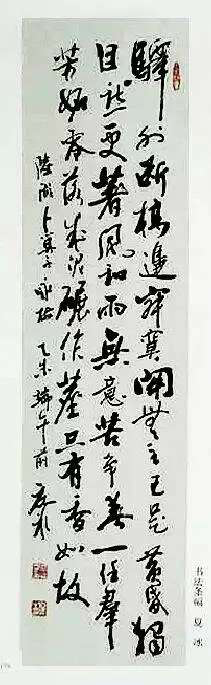 驛外斷橋邊寂寞開無主已是黄昏獨
自愁更著風和雨無意苦争春一任羣
芳妒零落成泥碾作塵只有香如故
陸游卜算子咏梅 乙未端午前 夏冰
书法条幅 夏冰